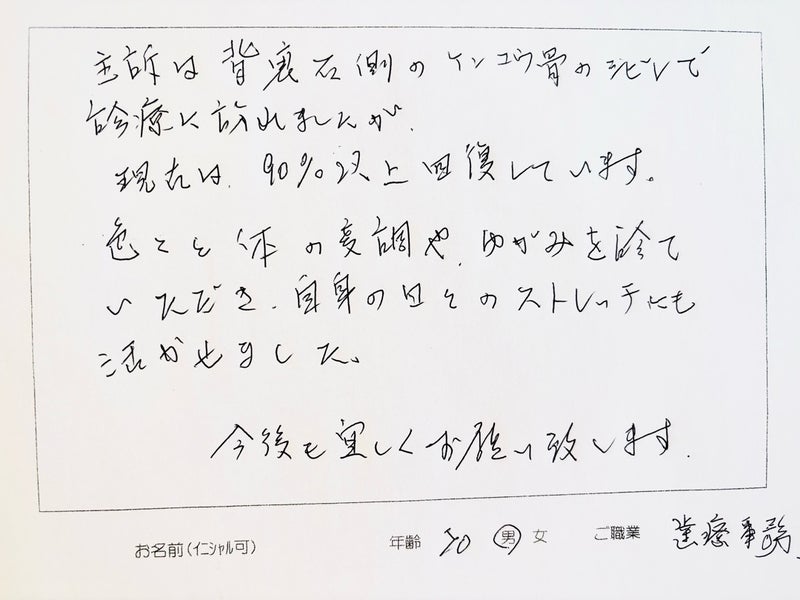 主訴は背裏右側のケンコウ骨のシビレで
診療に訪れましたが、
現在は、90%以上回復しています。
色々と体の変調や、ゆがみを診て
いただき、自身の日々のストレッチにも
活かせました。
今後も宜しくお願い致します.
お名前(イニシャル可) 年齢 50 男 女 ご職業 医療事務